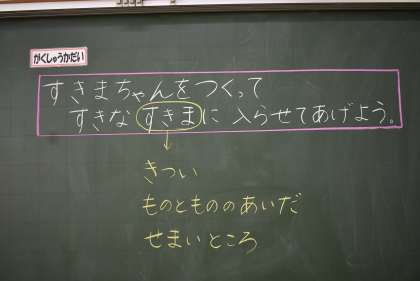 がくしゅうかだい
すきまちゃんをつくって
すきな すきまに 入らせてあげよう。
きつい
ものともののあいだ
せまいところ